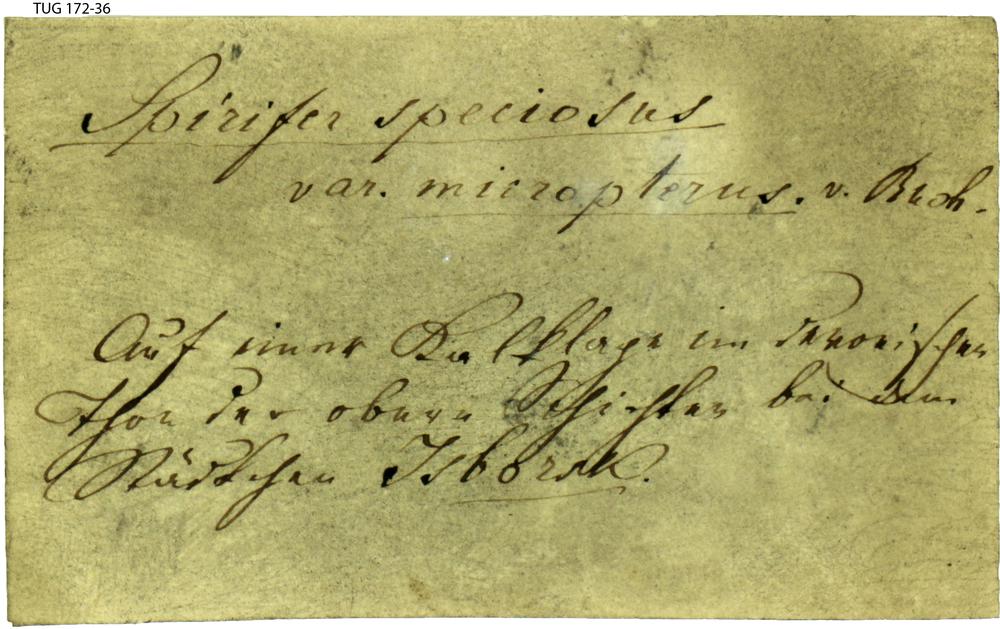 TUG 172-36
Spirifer speciosus
var. micropterus. v. Buch.
Auf einer Kalklage im devonischen
Thon der obern Schichten bei dem
Städtchen Isborsk.